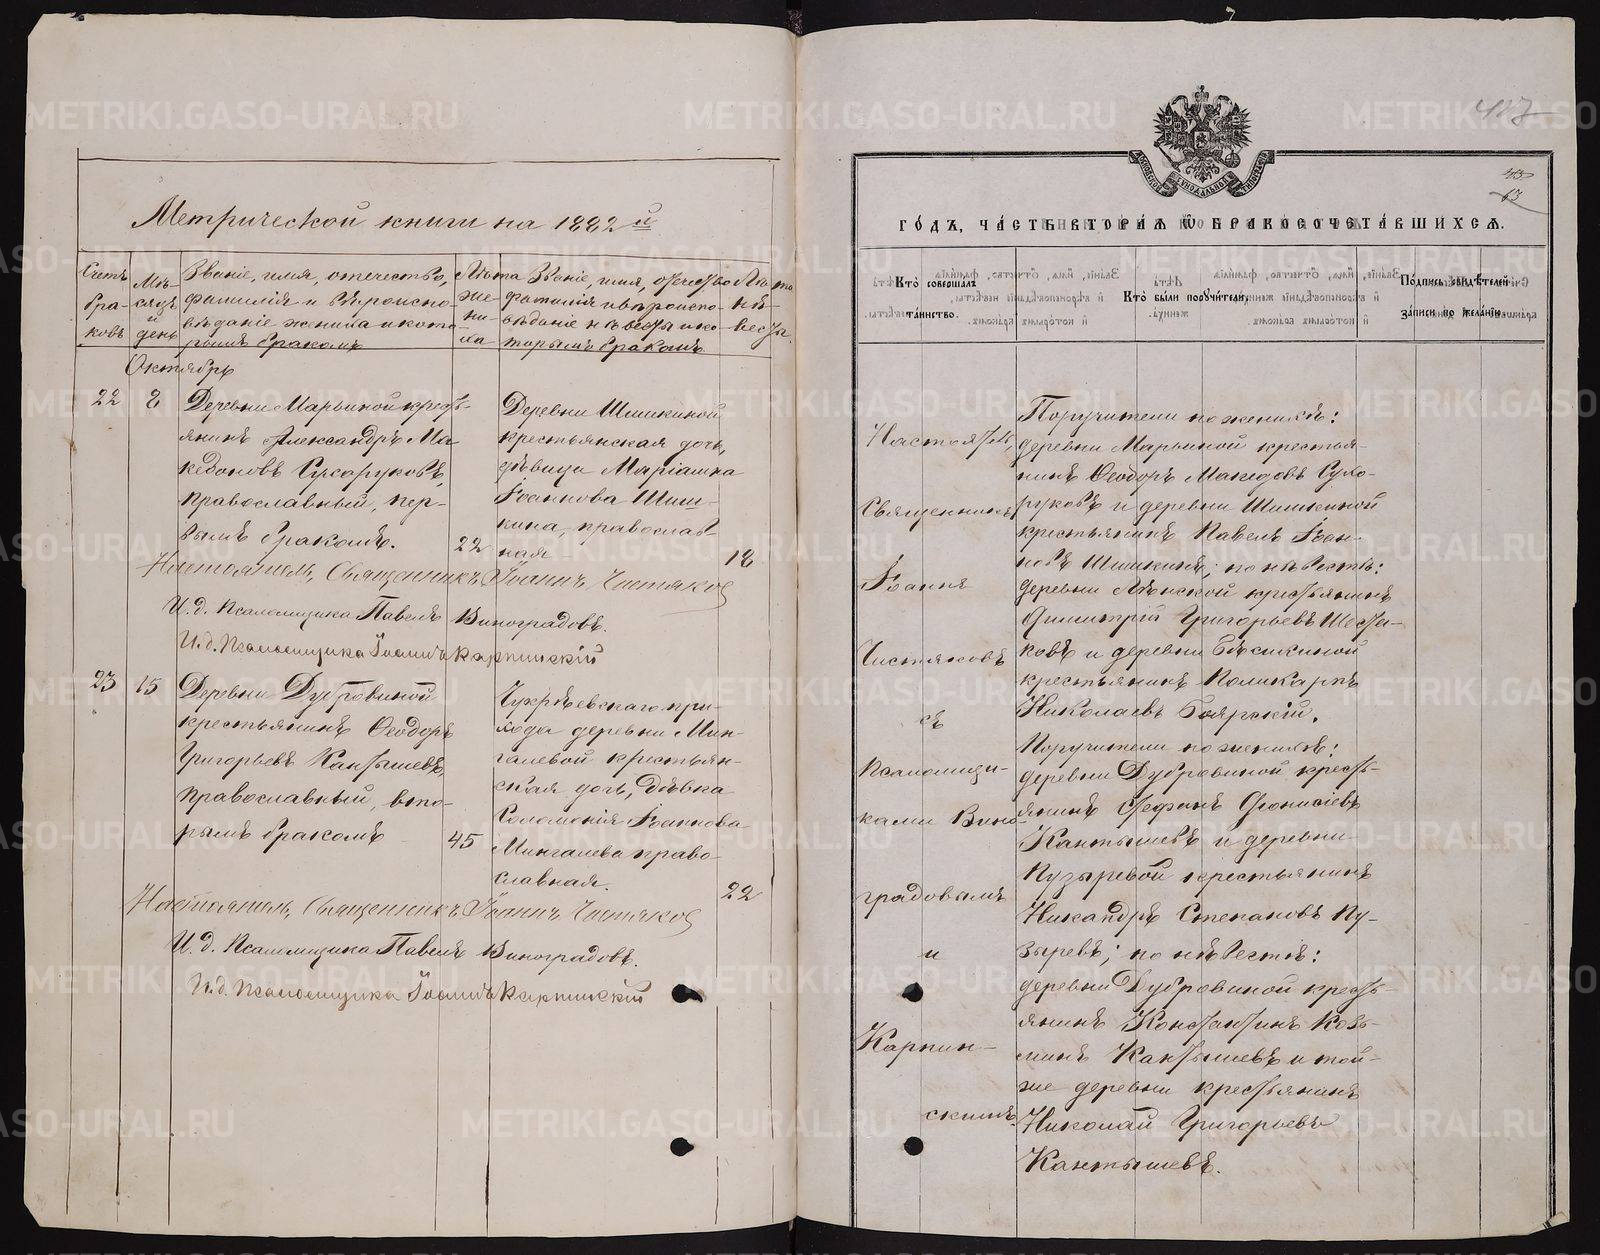 Метрической книги на 1882 й
Счетъ бра- ковъ
Мѣ- сяцъ и день
Званіе, имя, отечество,
фамилія и вѣроиспо-
вѣданіе жениха и кото-
рымъ бракомъ
Лѣта же- ни- ха
Званіе, имя, отечество
фамилія и вѣроиспо-
вѣданіе невѣсты и ко-
торымъ бракомъ.
Лѣта не- вѣсты.
Октябрь
22 8
Деревни Марьиной кресть-
янинъ Александръ Ма-
кедоновъ Сухоруковъ,
православный, пер-
вымъ бракомъ.
22
Деревни Шишкиной
крестьянская дочь,
дѣвица Маріамна
Іоаннова Шиш-
кина, православ-
ная
18
Настоятель, Священникъ Іоаннъ Чистяков
И.д. Псаломщика Павелъ Виноградовъ.
И.д. Псаломщика Іоаннъ Карпинскій
23 15
Деревни Дубровиной
крестьянинъ Ѳеодоръ
Григорьевъ Кантышевъ,
православный, вто-
рымъ бракомъ
45
прихода деревни Мин-
галевой крестьян-
ская дочь, дѣвка
Соломонія Іоаннова
Мингалева право-
славная.
22
Настоятель, Священникъ Іоаннъ Чистяков
И.д. Псаломщика Павелъ Виноградовъ.
И.д. Псаломщика Іоаннъ Карпинскій
417
43
63
МОСКОВСКОЙ СѴНОДАЛЬНОЙ ТИПОГРАФІИ
ГОДЪ, ЧАСТЬ ВТОРАЯ Ѡ БРАКОСОЧЕТАВШИХСЯ.
Кто совершалъ таинство.
Кто были поручители.
Подпись свидѣтелей записи по желанію.
Настоятель,
Священникъ
Іоаннъ
Чистяковъ
съ
Псаломщи-
ками Вино-
градовымъ
и
Карпин-
скимъ.
Поручители по женихѣ:
деревни Марьиной крестья-
нинъ Ѳеодоръ Македовъ Сухо-
руковъ и деревни Шишкиной
крестьянинъ Павелъ Іоан-
новъ Шишкинъ; по невѣстѣ:
деревни крестьянинъ
Димитрій Григорьевъ Шеста-
ковъ и деревни
крестьянинъ Поликарпъ
Николаевъ Боярскій.
Поручители по женихѣ:
деревни Дубровиной кресть-
янинъ Стефанъ Діонисіевъ
Кантышевъ и деревни
Пузыревой крестьянинъ
Никандръ Степановъ Пу-
зыревъ; по невѣстѣ:
деревни Дубровиной кресть-
янинъ Константинъ Козь-
минъ Кантышевъ и той-
же деревни крестьянинъ
Николай Григорьевъ
Кантышевъ.
METRIKI.GASO-URAL.RU